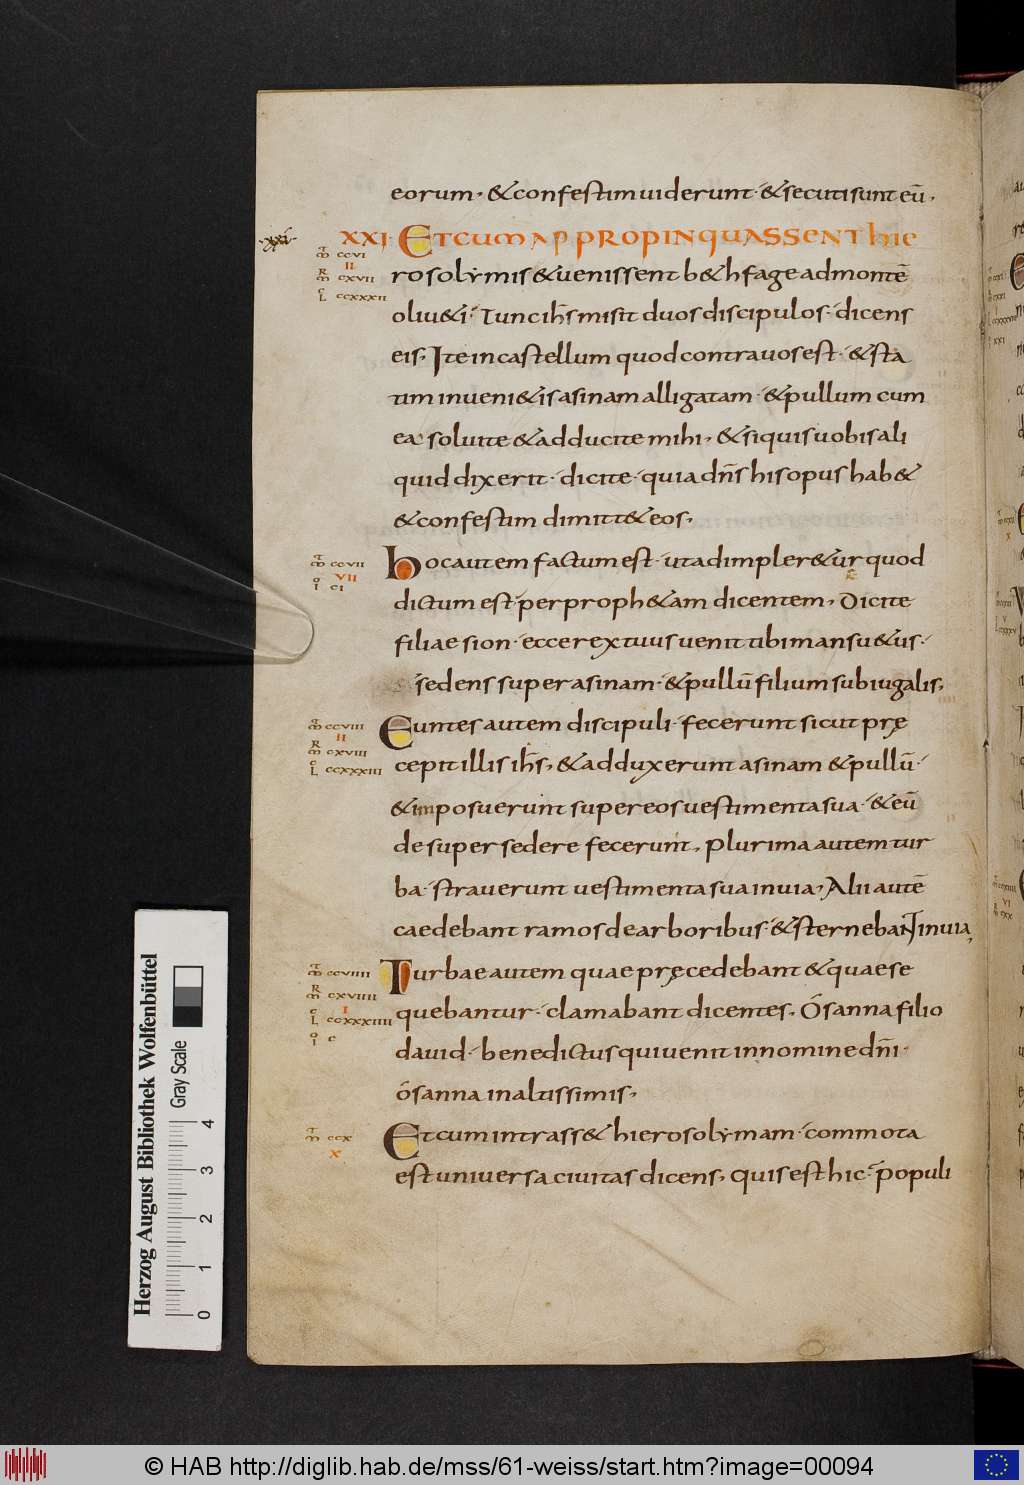 eorum, & confestim uiderunt · & secuti sunt eū,
·xxi·
XXI· ETCUM APPROPINQUASSENT HIE
m ccvi
II
m cxvii
L ccxxxii
rosolymis & uenissent b&hfage ad montē
oliu&i · Tunc ih̄s misit duos discipulos · dicens
eis, Ite in castellum quod contra uos est · & sta
tim inueni&is asinam alligatam · & pullum cum
ea soluite & adducite mihi, & siquis uobis ali
quid dixerit · dicite · quia dn̄s his opus hab&
& confestim dimitt& eos,
m ccvii
VII
I ci
hoc autem factum est · ut adimpler&ur quod
dictum est · per proph&am dicentem, Dicite
filiae sion · ecce rex tuus uenit tibi mansu&us ·
sedens super asinam · & pullū filium subiugalis,
m ccviii
II
m cxviii
L ccxxxiii
Euntes autem discipuli · fecerunt sicut prę
cepit illis ih̄s, & adduxerunt asinam & pullū ·
& imposuerunt super eos uestimenta sua · & eū
desuper sedere fecerunt, plurima autem tur
ba · strauerunt uestimenta sua in uia, Alii autē
caedebant ramos de arboribus · & sternebant in uia,
m ccviiii
m cxviiii
I
L ccxxxiiii
I c
Turbae autem quae pręcedebant & quae se
quebantur · clamabant dicentes, Osanna filio
dauid · benedictus qui uenit in nomine dn̄i ·
osanna in altissimis,
m ccx
x
Et cum intrass& hierosolymam · commota
est uniuersa ciuitas dicens, quis est hic · populi
Herzog August Bibliothek Wolfenbüttel
Gray Scale
0 1 2 3 4
© HAB http://diglib.hab.de/mss/61-weiss/start.htm?image=00094